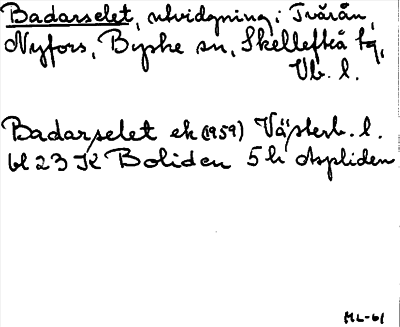 Badarselet, utvidgning i Tvärån,
Nyfors, Byske sn, Skellefteå tg,
Vb. l.
Badarselet ek (1959) Västerb. l.
bl 23 K Boliden 5 h Åspliden
ML-61